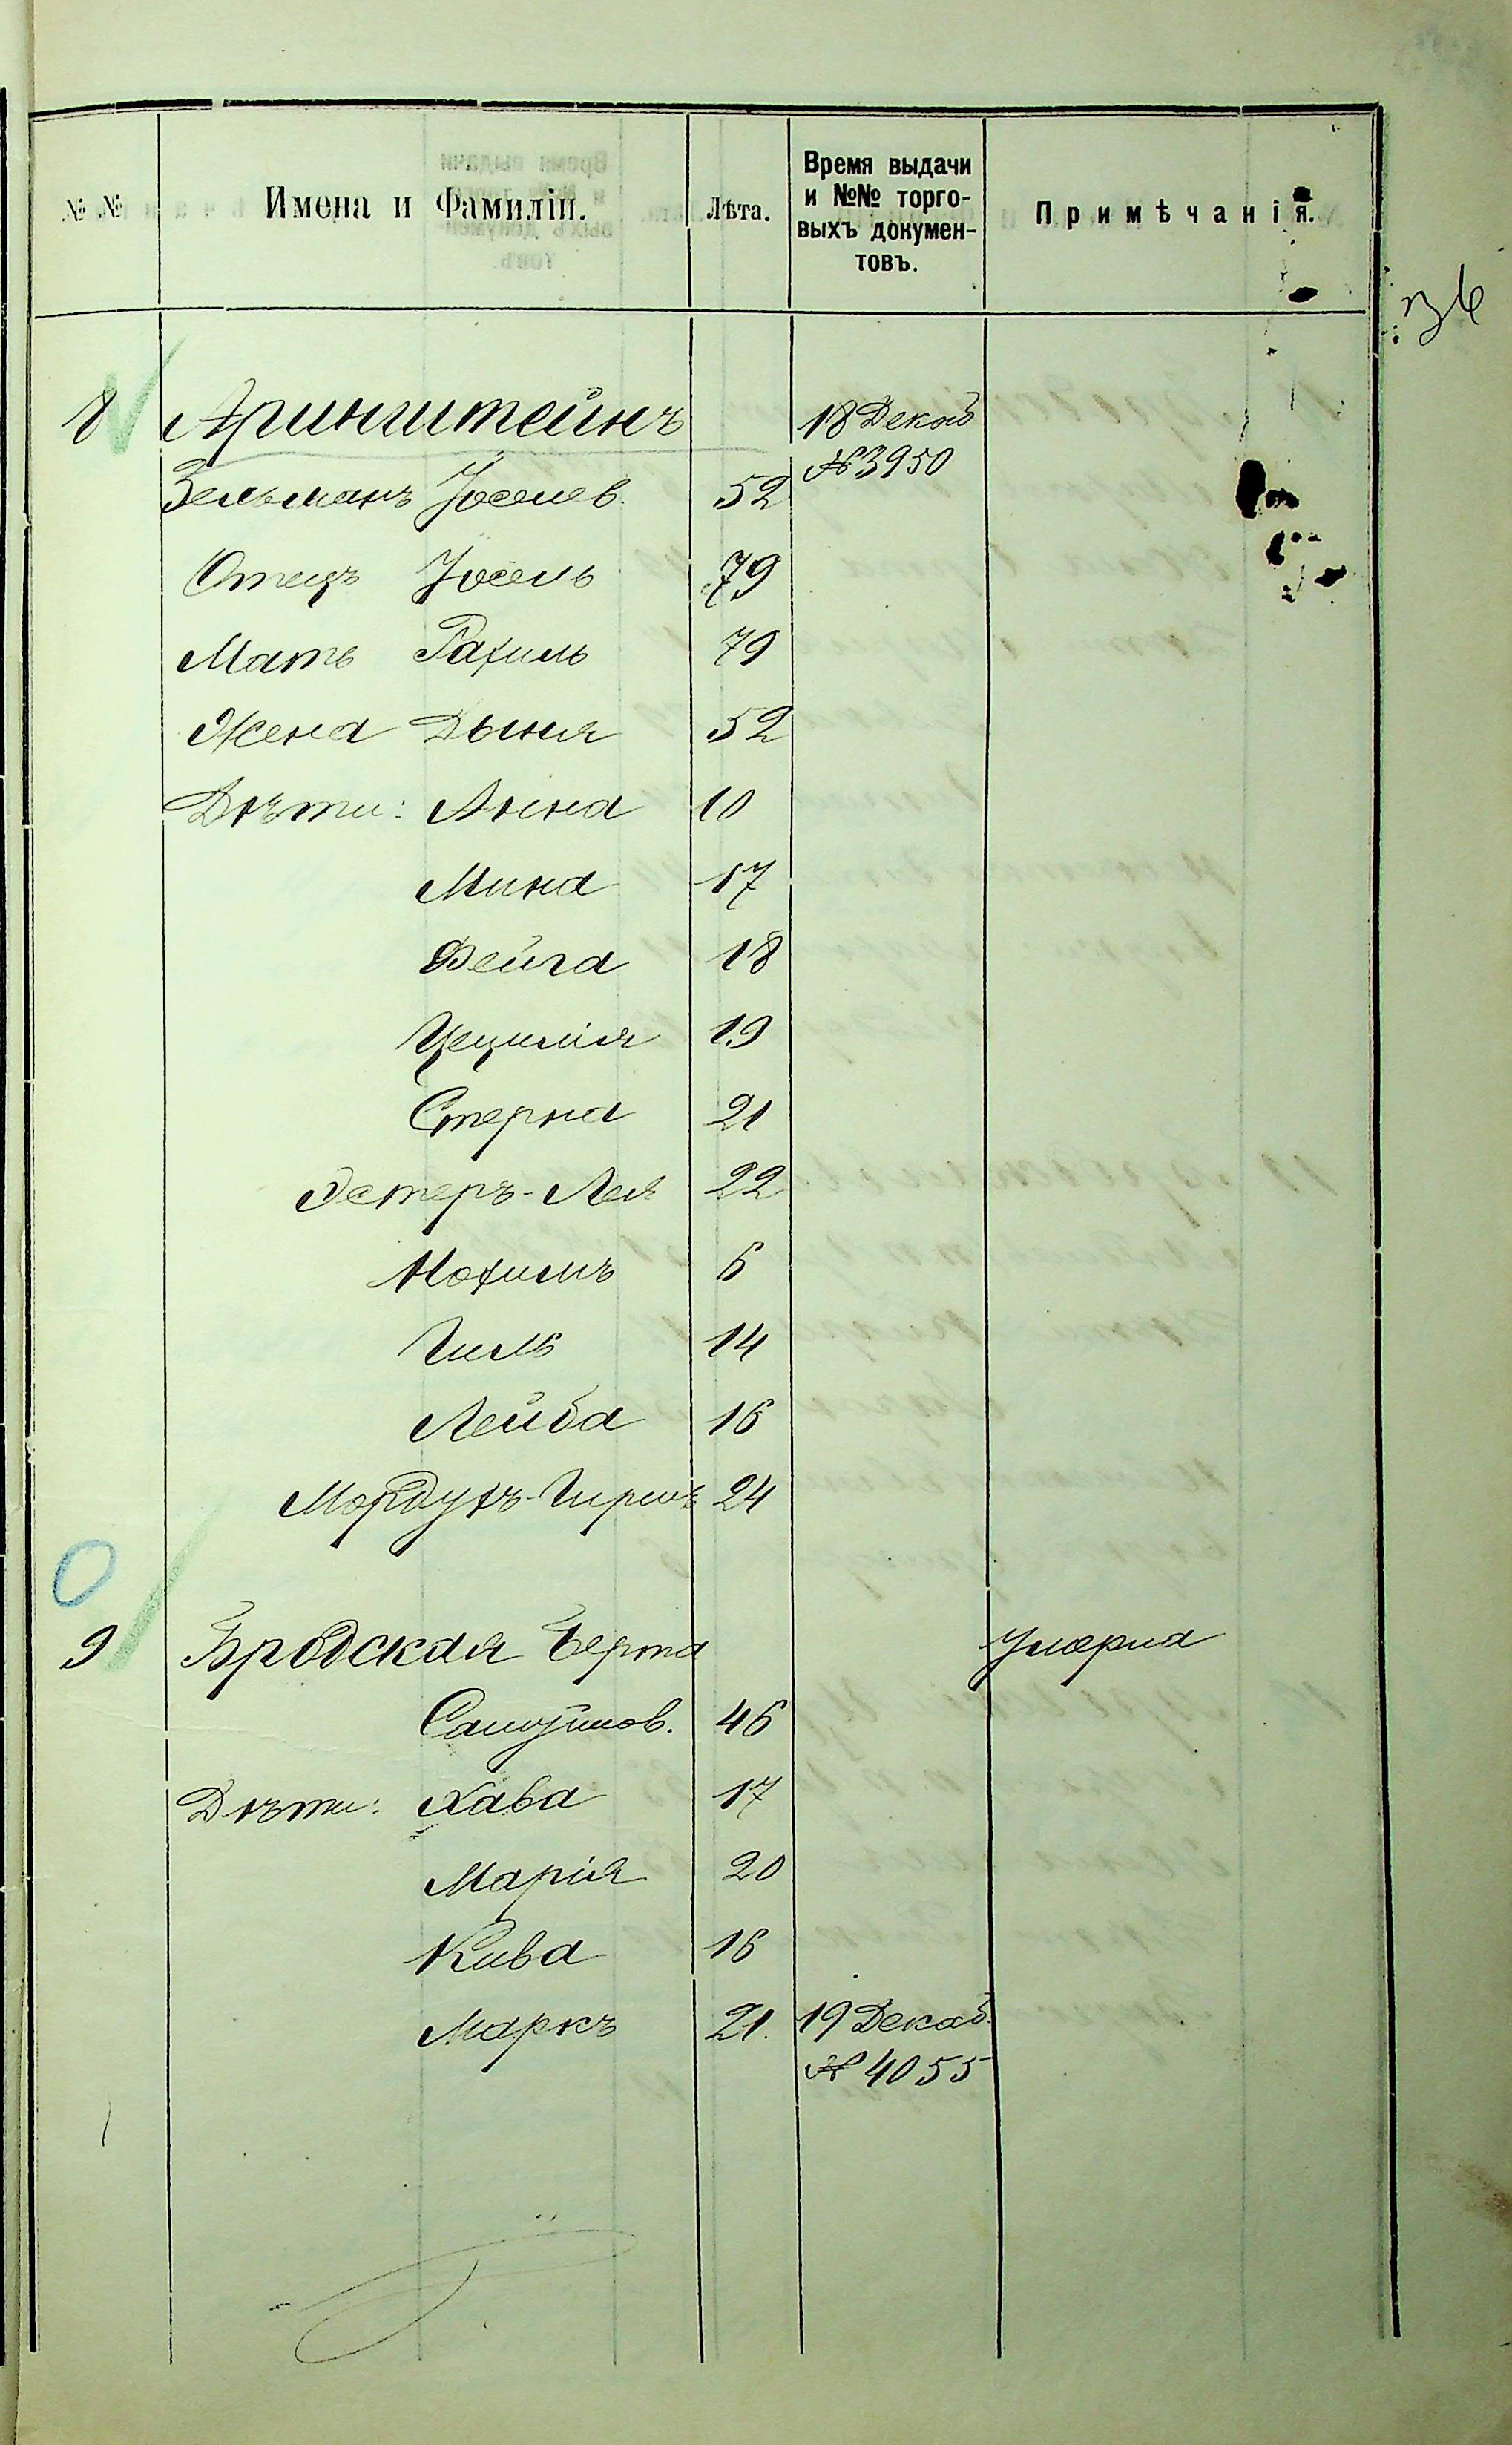 № № Имена и Фамиліи. Лѣта. Время выдачи и №№ торго-выхъ докумен-товъ. Примѣчанія.
36
8 Аринштейнъ 18 Декаб
№ 3950
Зельманъ Іоселев. 52
Отецъ Іосель 79
Мать Рахиль 79
Жена Дыня 52
Дѣти: Анна 10
Мина 17
Фейга 18
Цецилія 19
Стерна 21
Эстеръ-Лея 22
Нохимъ 6
Гиль 14
Лейба 16
Мордухъ-Гиршъ 24
9 Бродская Берта Умерла
Самуилов. 46
Дѣти: Хава 17
Марія 20
Кива 16
Маркъ 21. 19 Декаб.
№ 4055